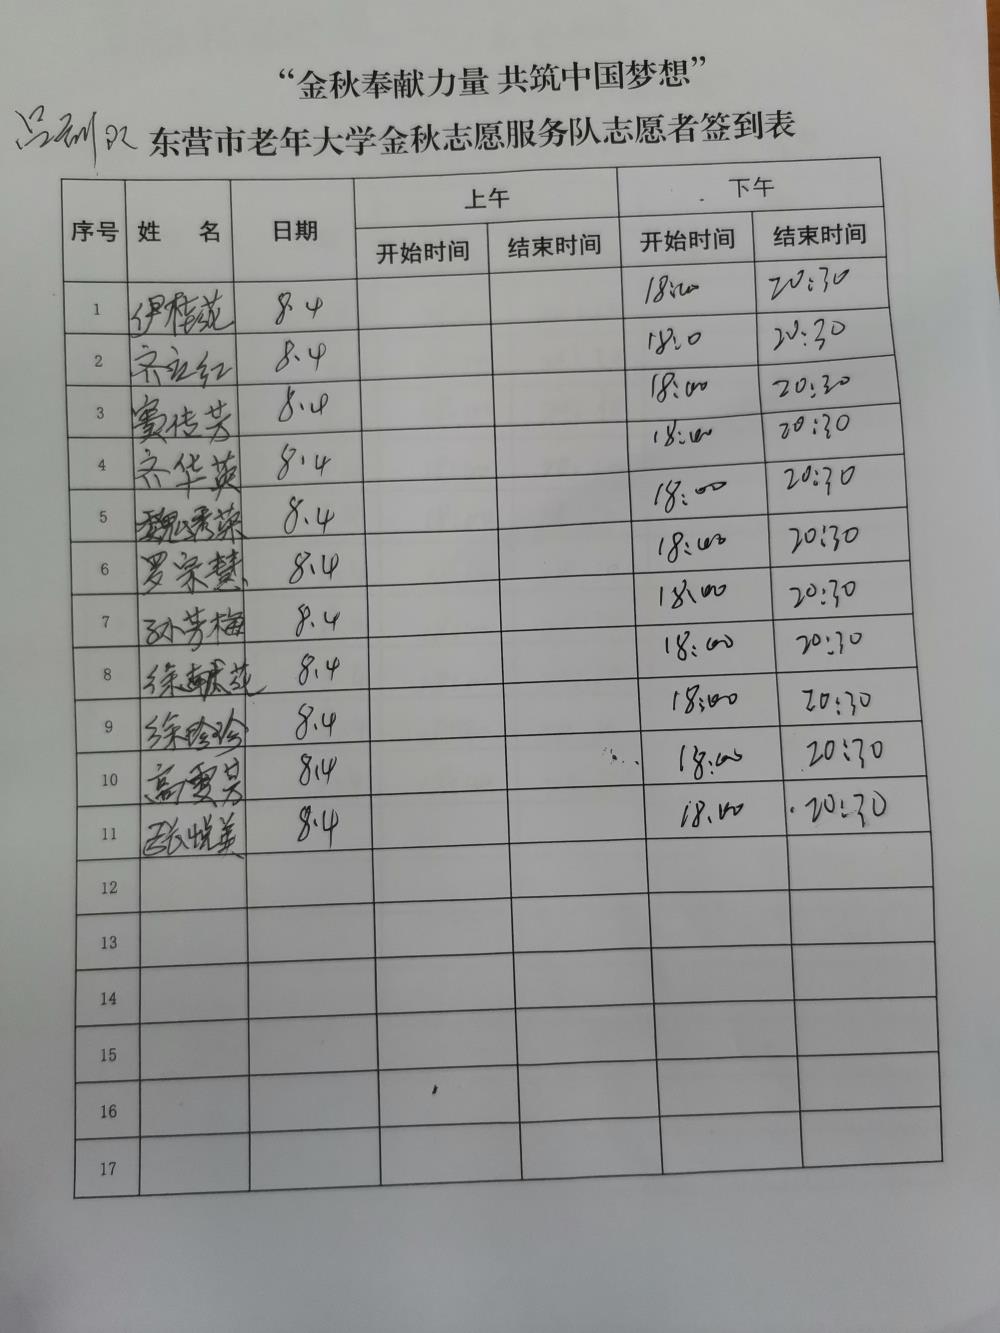 “金秋奉献力量 共筑中国梦想”
吕剧队 东营市老年大学金秋志愿服务队志愿者签到表
序号 姓 名 日期 上午 下午
开始时间 结束时间 开始时间 结束时间
1 伊桂花 8.4 18:00 20:30
2 齐立红 8.4 18:0 20:30
3 窦传芳 8.4 18:00 20:30
4 齐华英 8.4 18:00 20:30
5 魏秀荣 8.4 18:00 20:30
6 罗宗慧 8.4 18:00 20:30
7 孙芳梅 8.4 18:00 20:30
8 徐献花 8.4 18:00 20:30
9 徐玲玲 8.4 18:00 20:30
10 高雪芳 8.4 18:00 20:30
11 张悦美 8.4 18.00 20:30
12
13
14
15
16
17